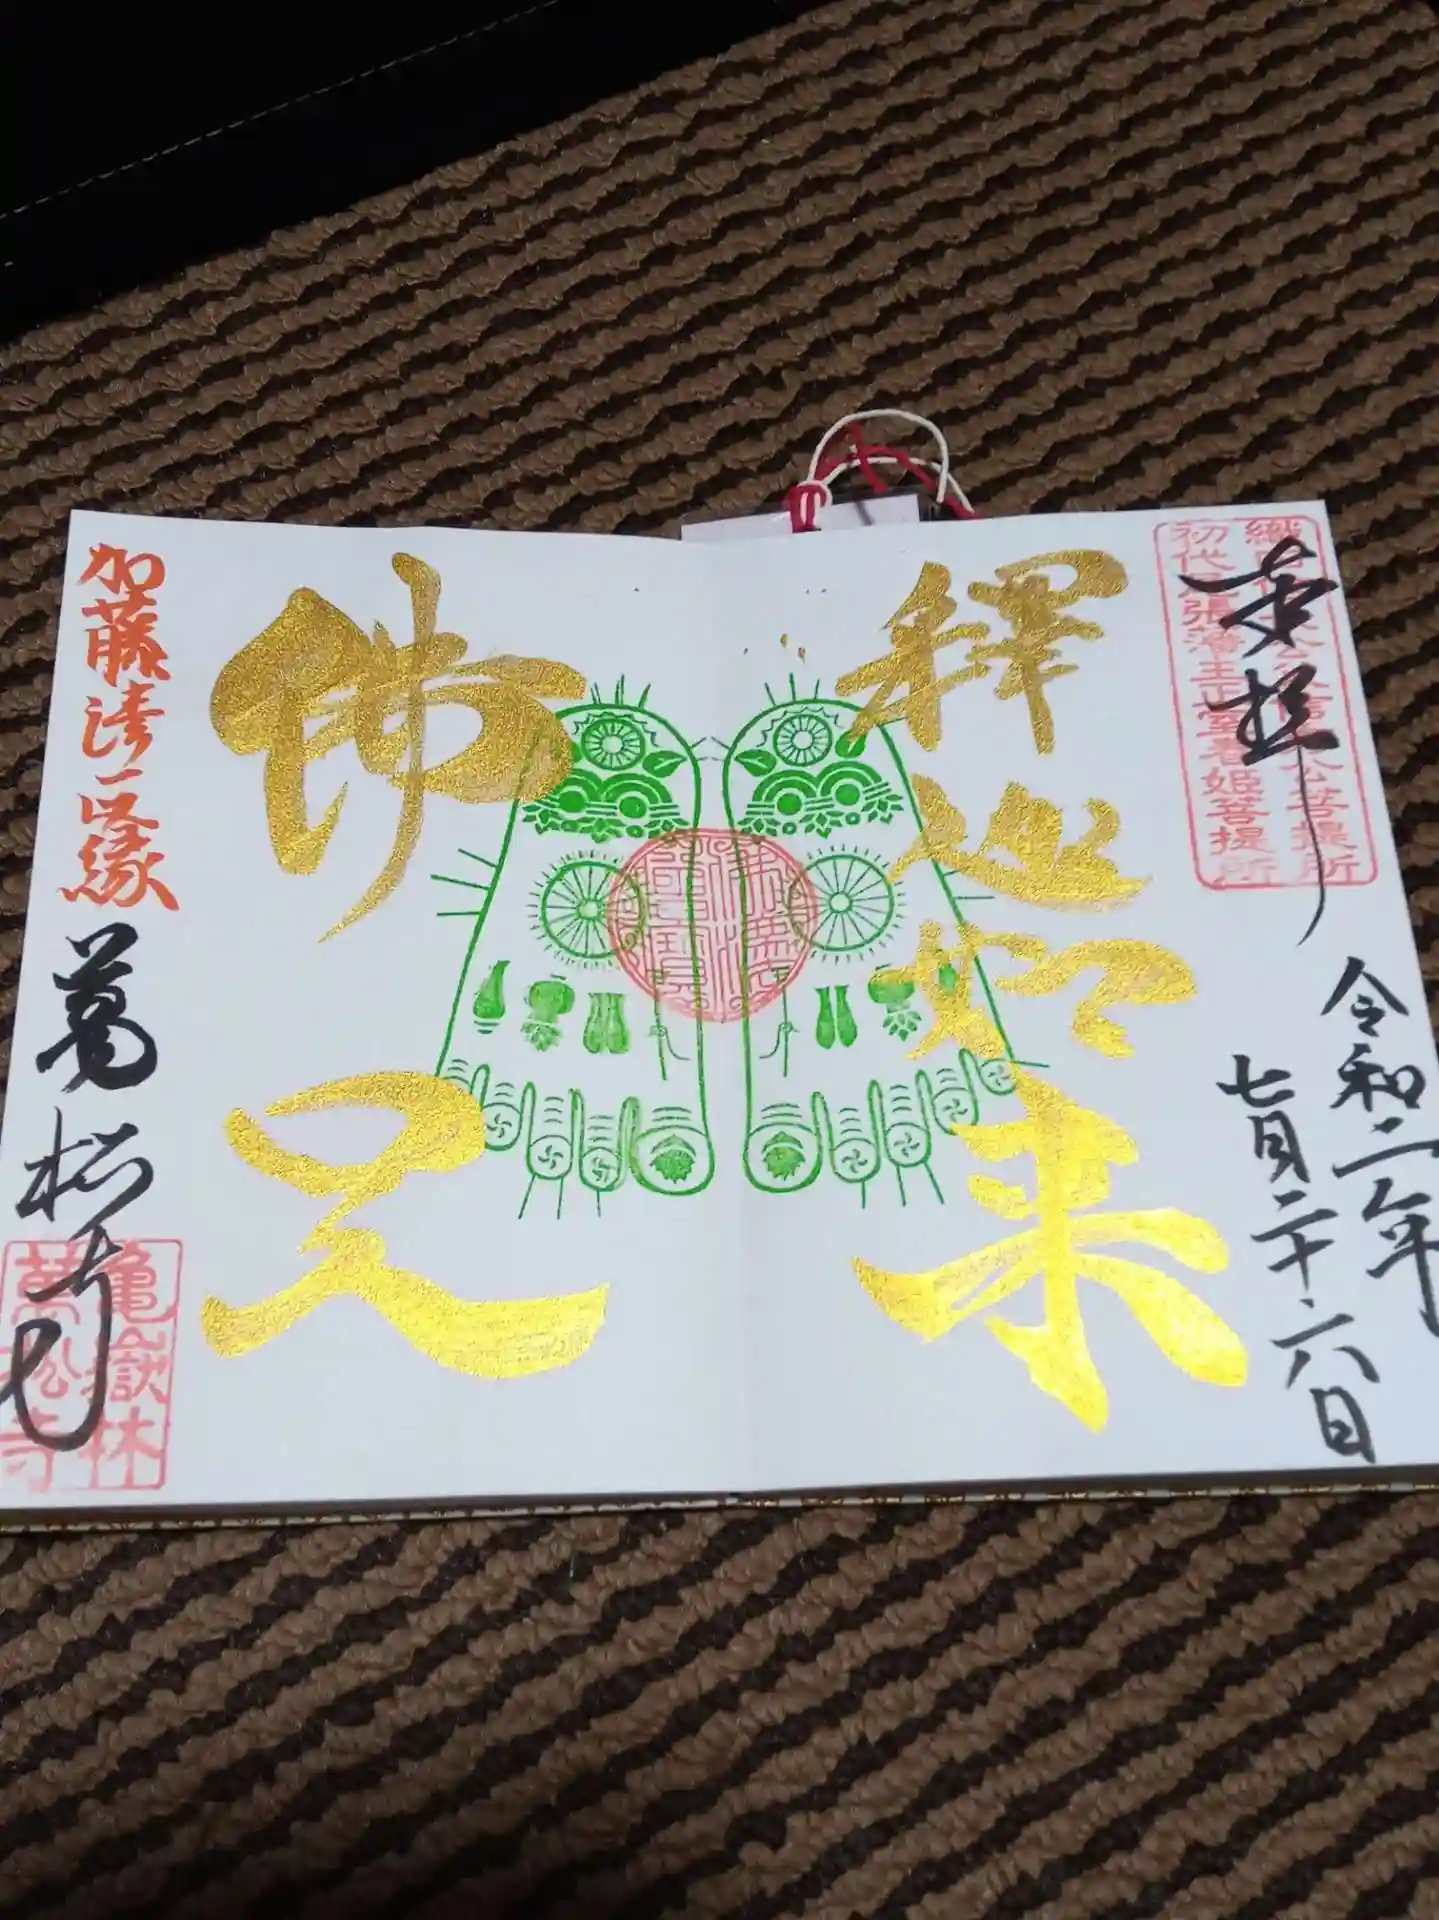 奉拝
初代尾張藩主正室春姫菩提所
令和二年
七月二十六日
釋迦如来
佛足
加藤清正公縁
萬松寺
亀嶽林
萬松寺